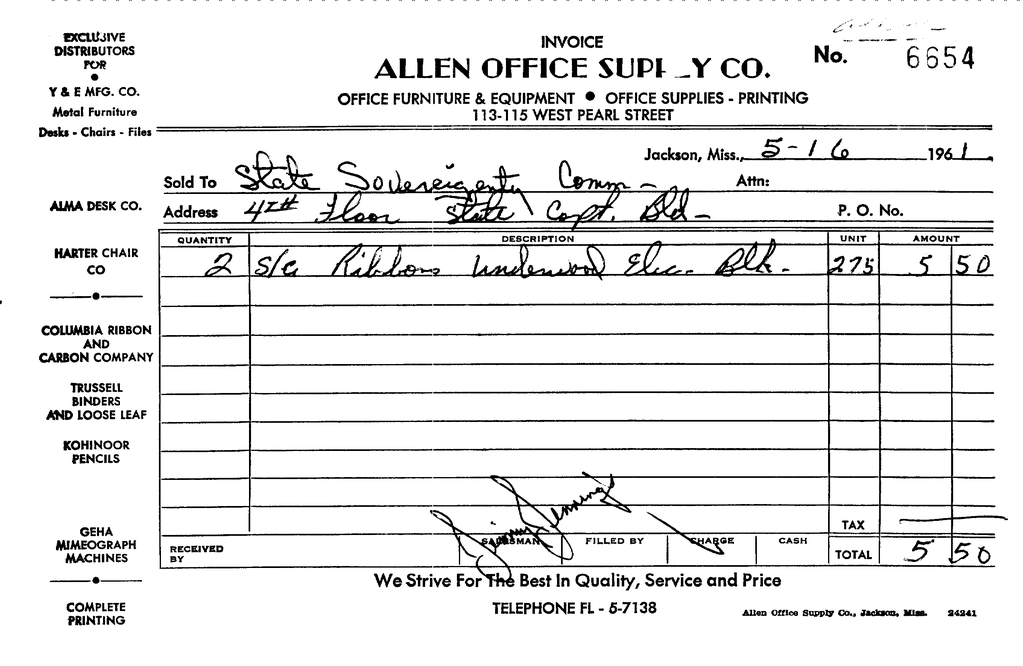 EXCLUSIVE
DISTRIBUTORS
FOR
Y & E MFG. CO.
Metal Furniture
Desks - Chairs - Files
ALMA DESK CO.
HARTER CHAIR
CO
COLUMBIA RIBBON
AND
CARBON COMPANY
TRUSSELL
BINDERS
AND LOOSE LEAF
KOHINOOR
PENCILS
GEHA
MIMEOGRAPH
MACHINES
COMPLETE
PRINTING
INVOICE
ALLEN OFFICE SUPPLY CO.
No. 6654
OFFICE FURNITURE & EQUIPMENT ● OFFICE SUPPLIES - PRINTING
113-115 WEST PEARL STREET
Jackson, Miss., 5-16 1961
Sold To State Sovereigenty Comm - Attn:
Address 4TH Floor State Capt. Bld- P. O. No.
QUANTITY DESCRIPTION UNIT AMOUNT
2 S/C Ribbons Underwood Elec. Blk. 275 5 50
TAX
RECEIVED BY SALESMAN FILLED BY CHARGE CASH TOTAL 5 50
Jimmy Jennings
We Strive For The Best In Quality, Service and Price
TELEPHONE FL - 5-7138
Allen Office Supply Co., Jackson, Miss. 24241